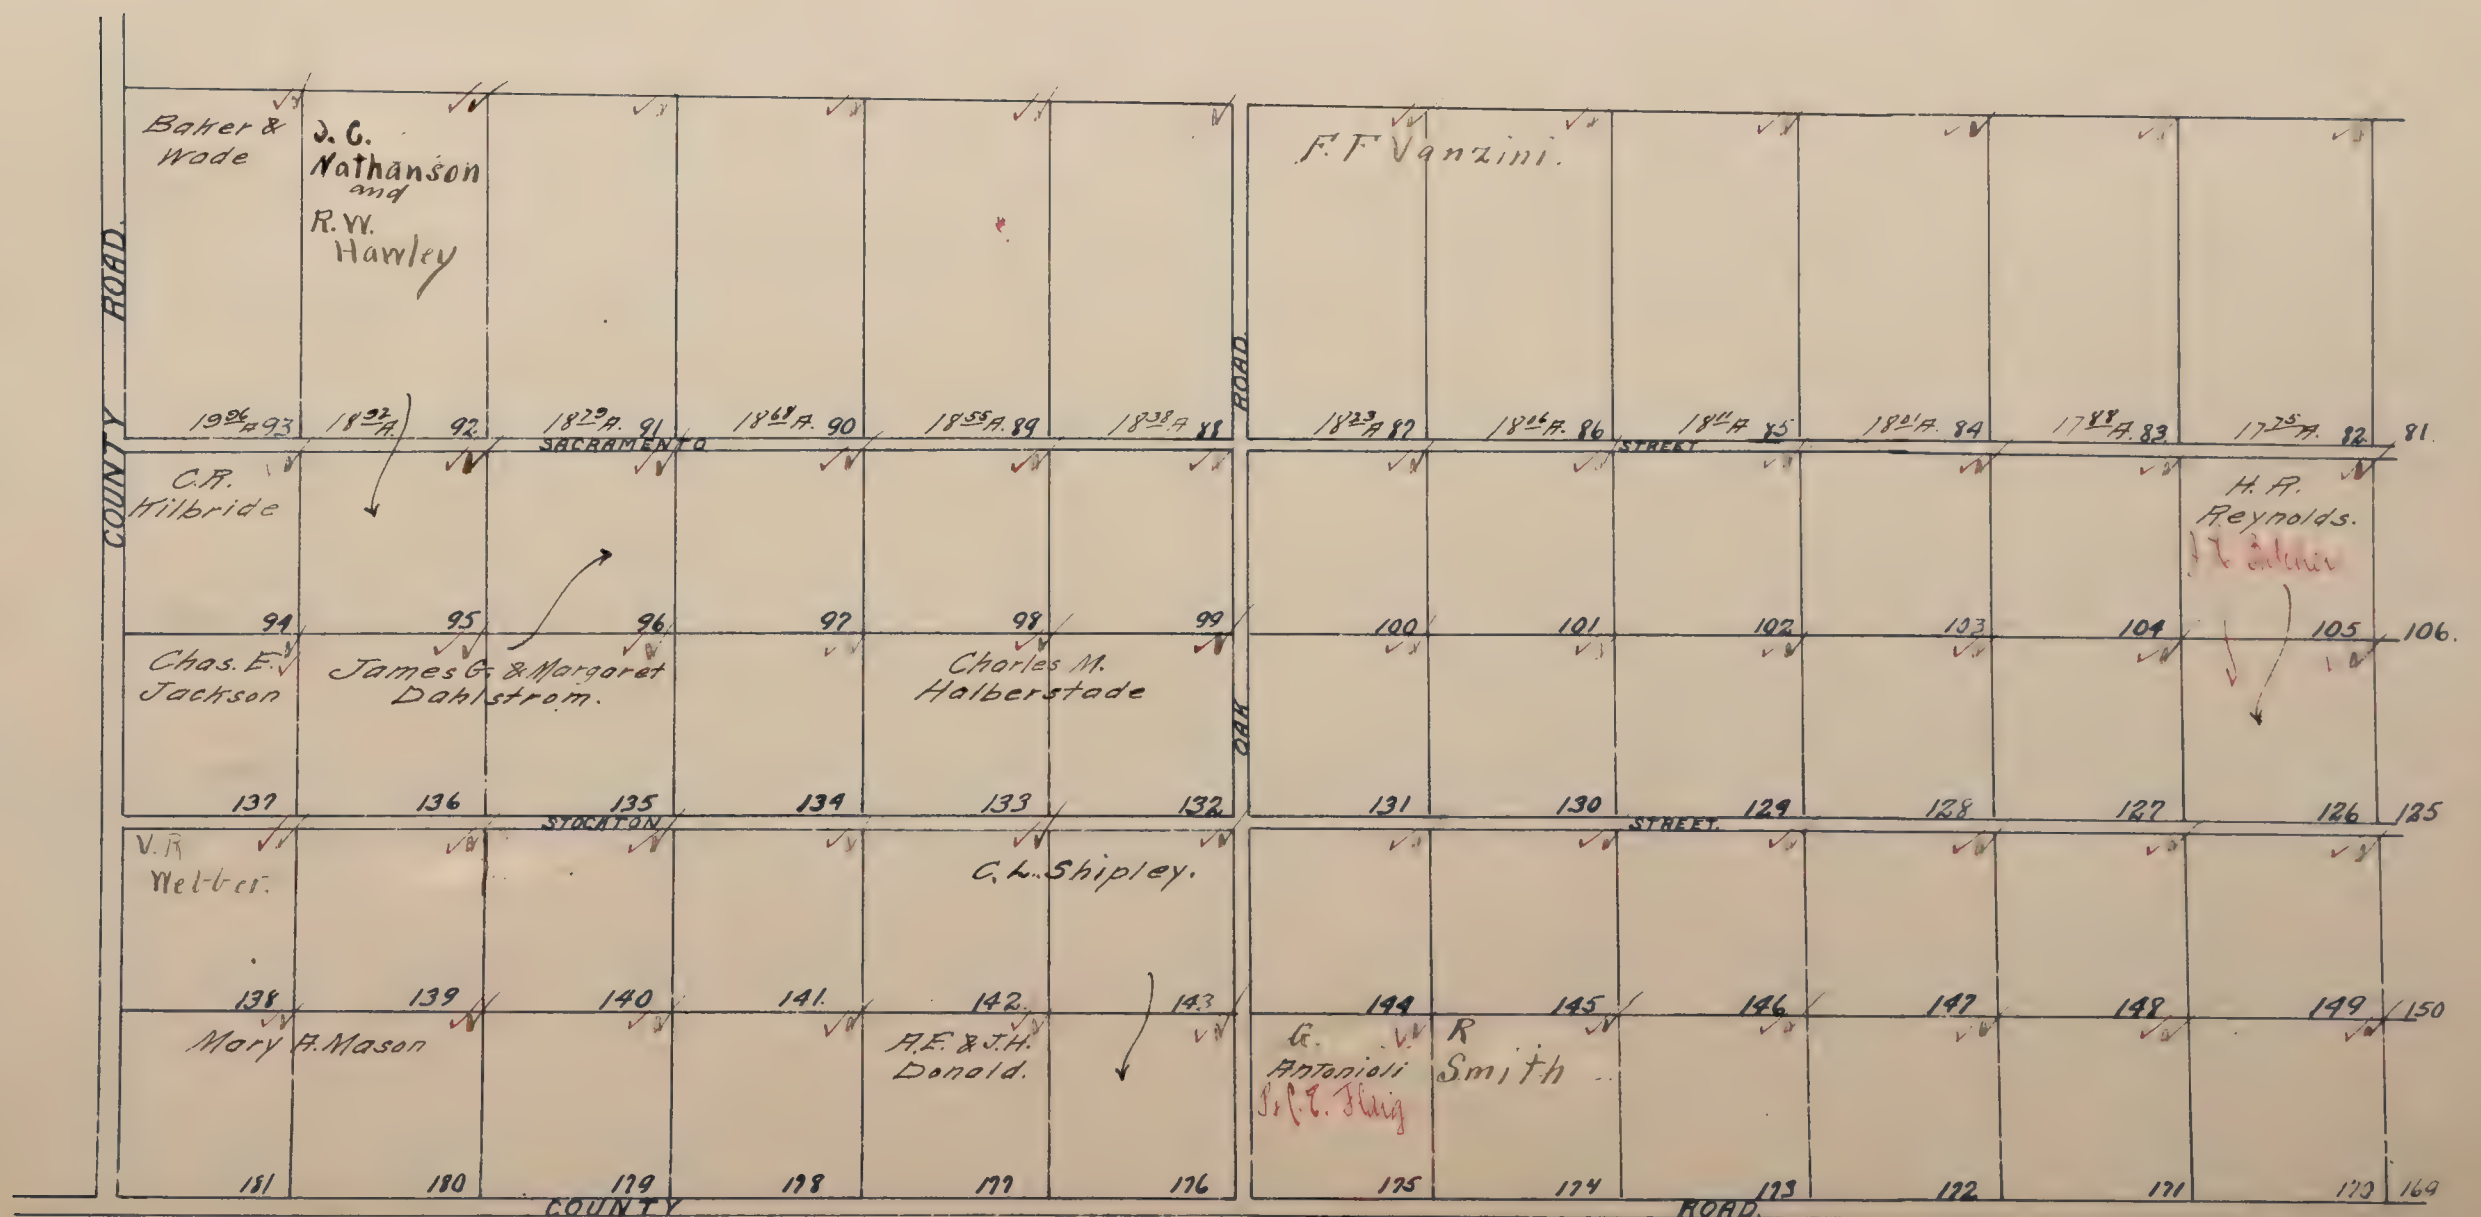 Baker &
Wade
J. C.
Nathanson
and
R. W.
Hawley
F. F Vanzini.
COUNTY ROAD.
OAK ROAD.
19 96 A 93
18 92 A. 92
18 79 A. 91
18 68 A. 90
18 55 A. 89
18 38 A 88
18 23 A 87
18 06 A. 86
18 11 A 85
18 01 A. 84
17 88 A. 83
17 75 A. 82
81.
SACRAMENTO STREET
C. R.
Kilbride
H. R.
Reynolds.
94 95 96 97 98 99 100 101 102 103 104 105 106.
Chas. E.
Jackson
James G. & Margaret
Dahlstrom.
Charles M.
Halberstade
137 136 135 134 133 132 131 130 129 128 127 126 125
STOCKTON STREET.
V. R
Webber.
C. L. Shipley.
138 139 140 141. 142. 143 144 145 146 147 148 149 150
Mary A. Mason
A. E. & J. H.
Donald.
G.
Antonioli
Flaig
R
Smith
181 180 179 178 177 176 175 174 173 172 171 170 169
COUNTY ROAD.